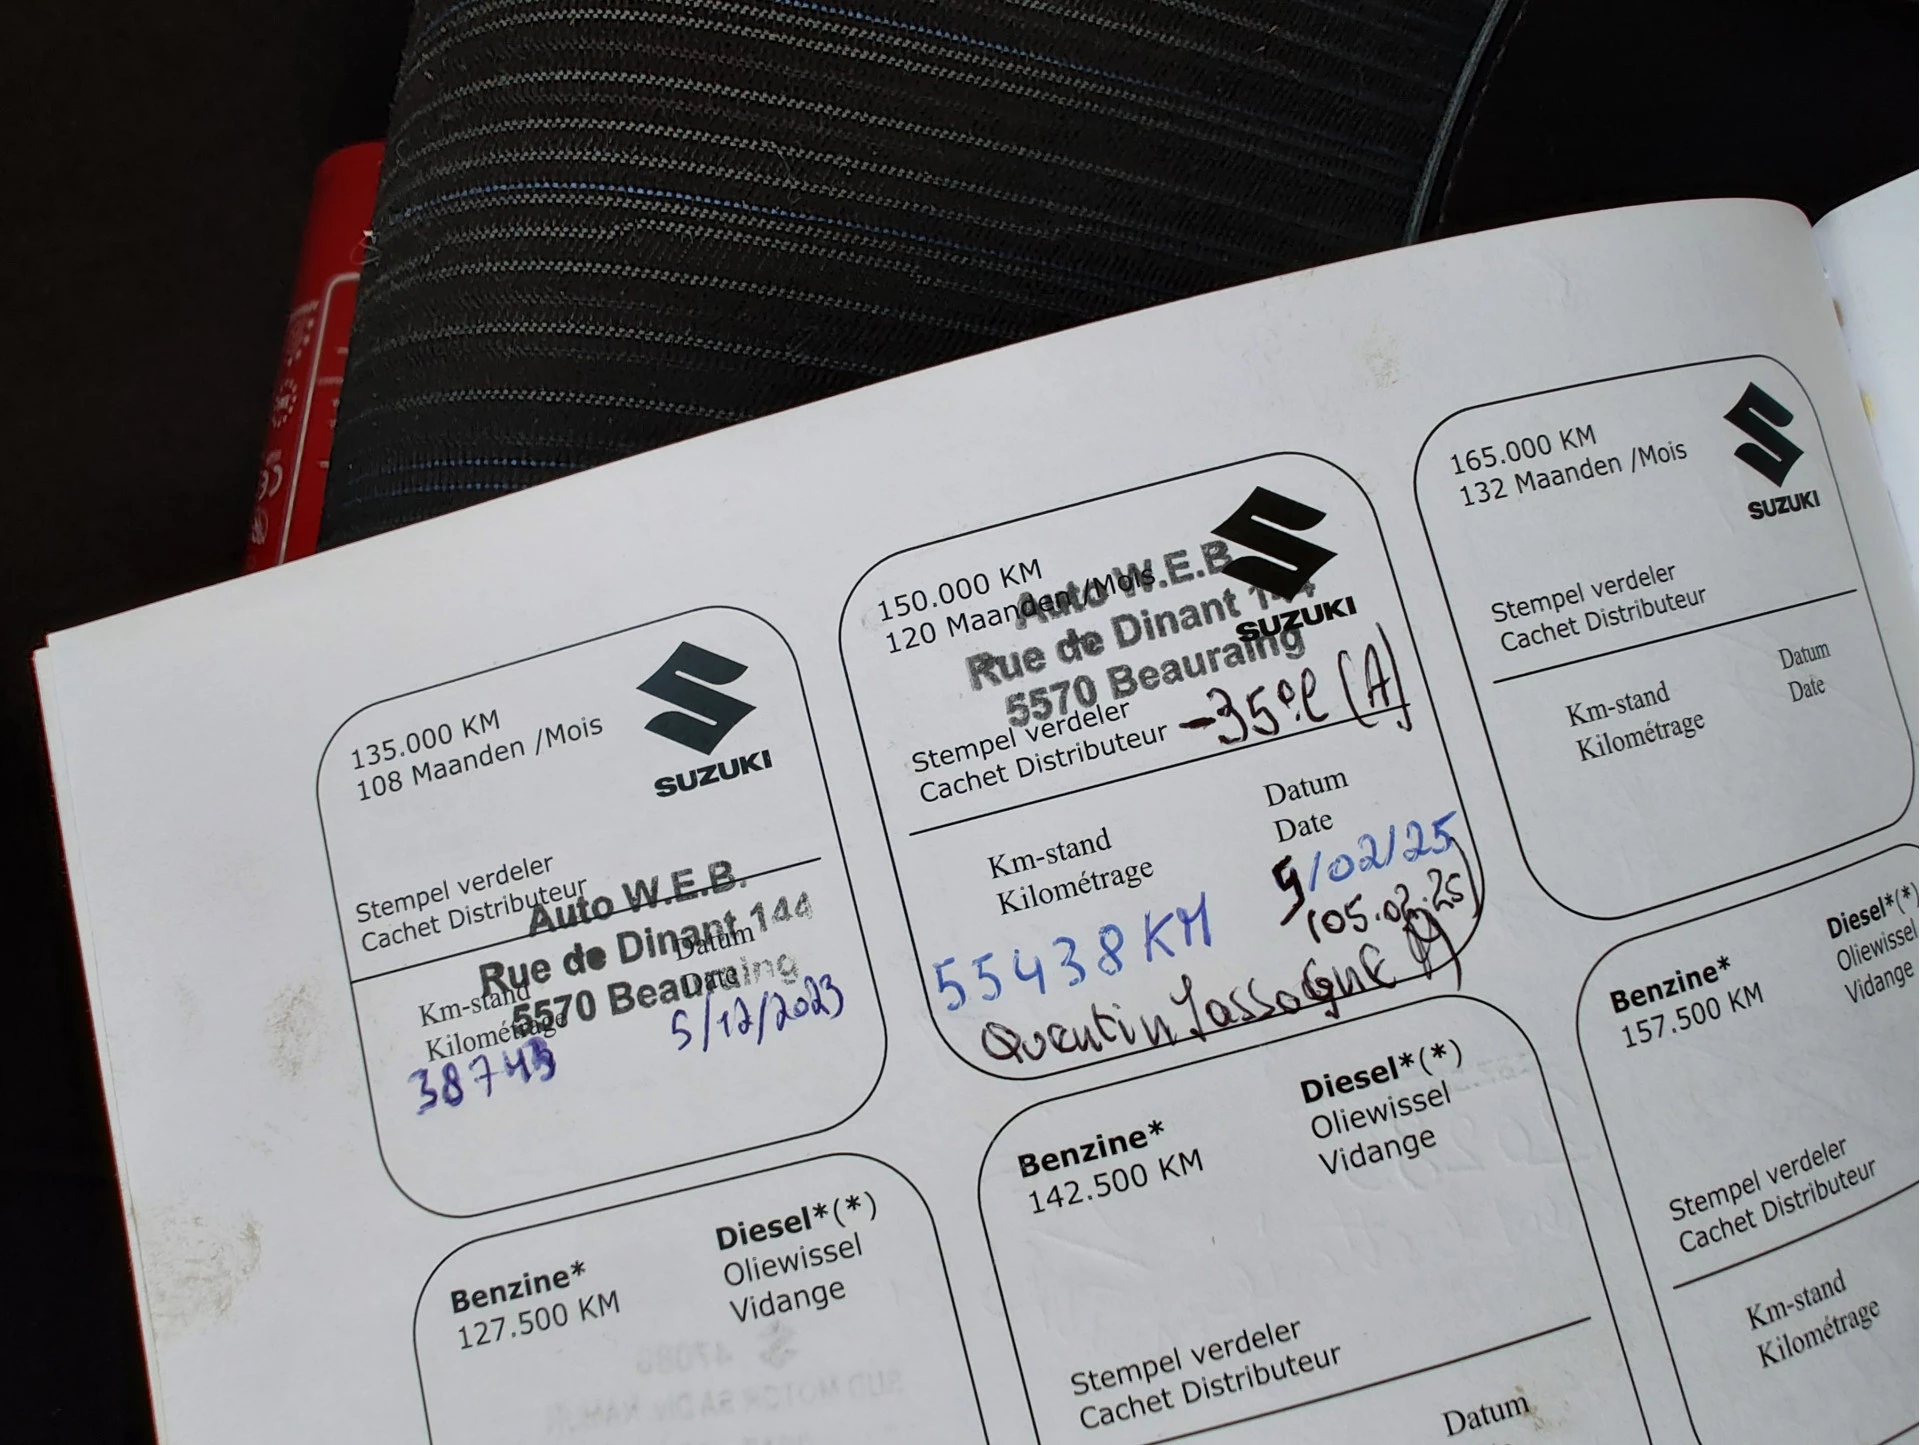 135.000 KM
108 Maanden /Mois
SUZUKI
Stempel verdeler
Cachet Distributeur
Auto W.E.B.
Rue de Dinant 144
5570 Beauraing
Km-stand
Kilométrage
Datum
Date
38743
5/12/2023
150.000 KM
120 Maanden /Mois
SUZUKI
Auto W.E.B
Rue de Dinant 144
5570 Beauraing
Stempel verdeler
Cachet Distributeur
-35°C (A)
Km-stand
Kilométrage
Datum
Date
55438 KM
5/02/25
(05.02.25)
Quentin
165.000 KM
132 Maanden /Mois
SUZUKI
Stempel verdeler
Cachet Distributeur
Km-stand
Kilométrage
Datum
Date
Benzine*
127.500 KM
Diesel*(*)
Oliewissel
Vidange
Benzine*
142.500 KM
Diesel*(*)
Oliewissel
Vidange
Stempel verdeler
Cachet Distributeur
Datum
Benzine*
157.500 KM
Diesel*(*)
Oliewissel
Vidange
Stempel verdeler
Cachet Distributeur
Km-stand
Kilométrage